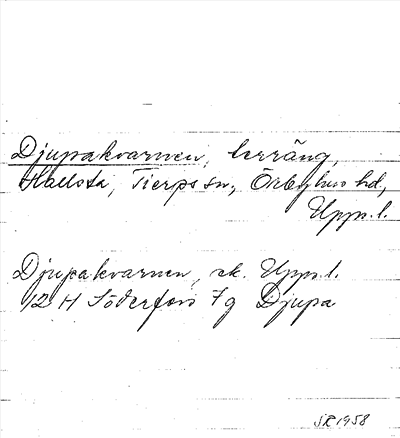 Djupakvarnen, terräng,
Hallsta, Tierps sn., Örbyhus hd,
Uppn.l.
Djupakvarnen, ek. Uppn.l.
12 H Söderfors 7g Djupa
SR 1958